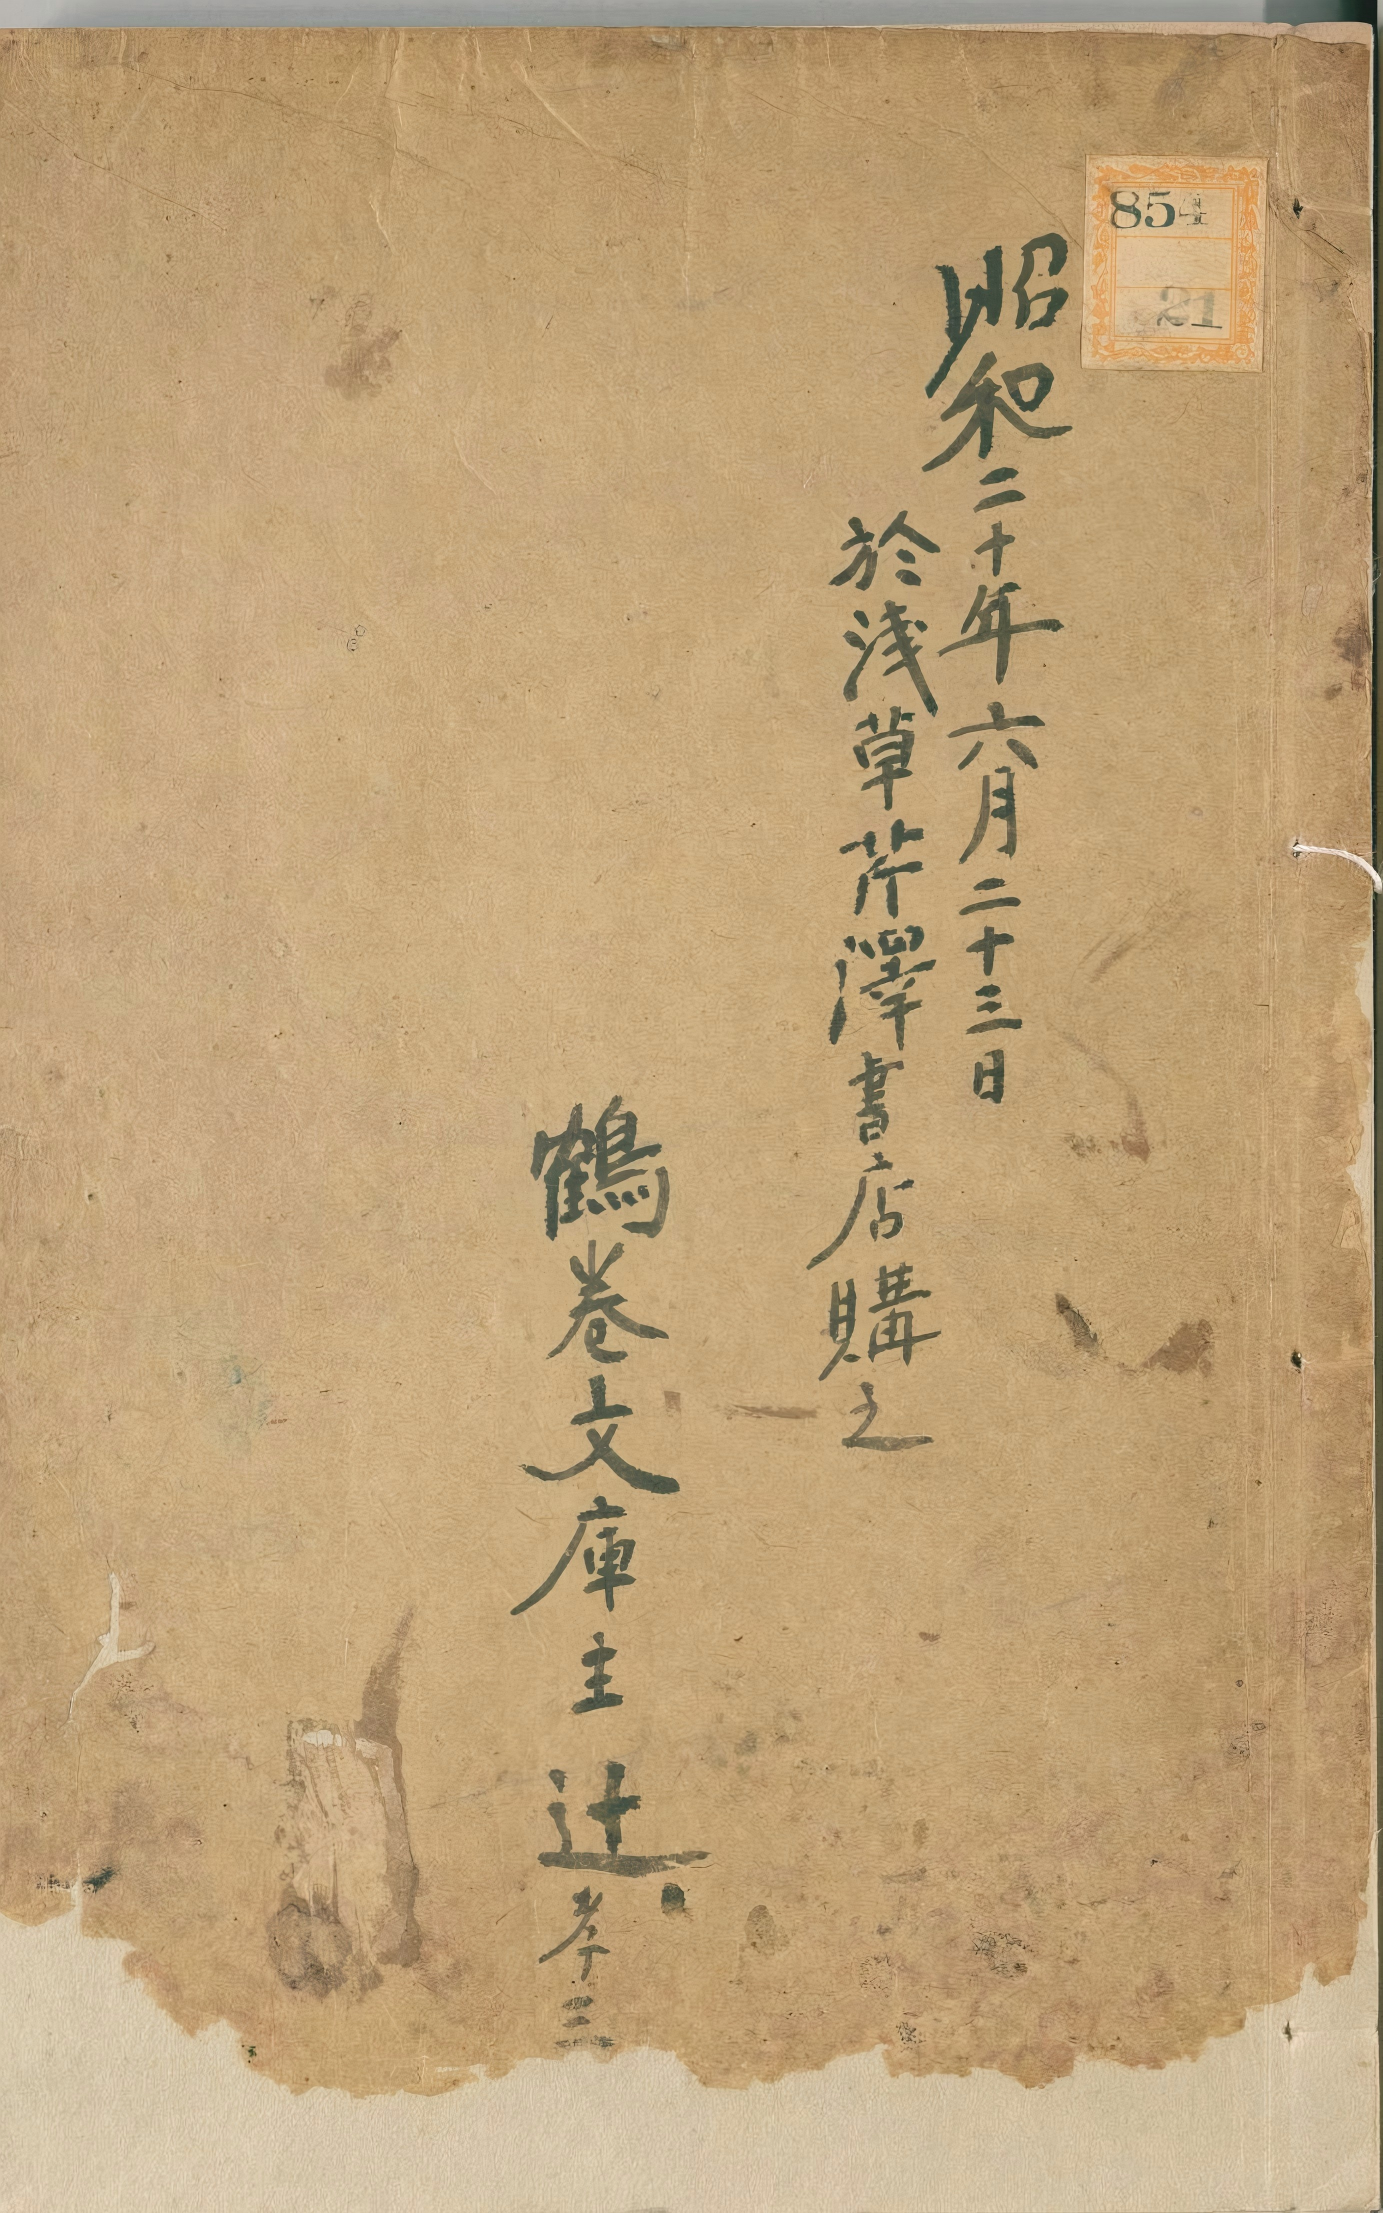 854
21
昭和二十年六月二十三日
於浅草芹澤書店購之
鶴巻文庫主 辻孝三